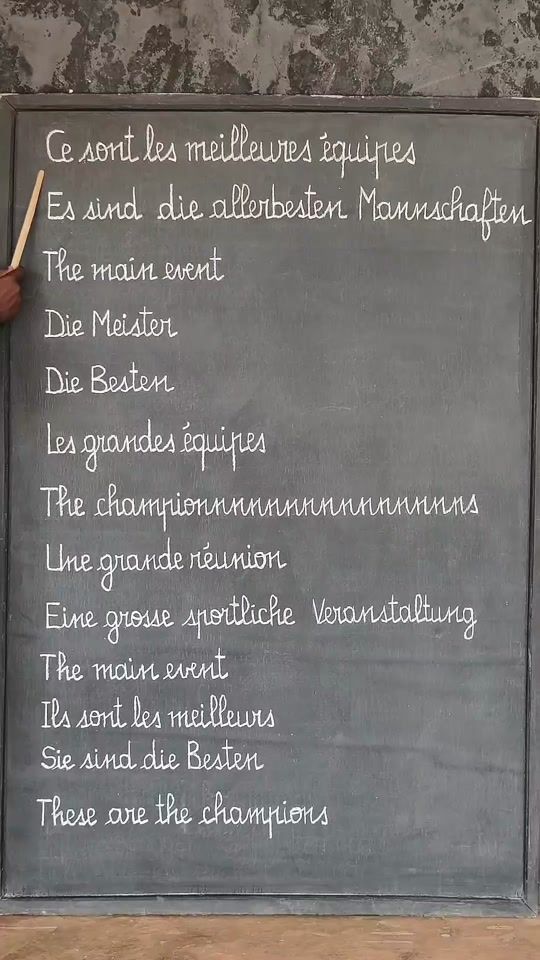 Ce sont les meilleures équipes
Es sind die allerbesten Mannschaften
The main event
Die Meister
Die Besten
Les grandes équipes
The championnnnnnnnnnnnnnnns
Une grande réunion
Eine grosse sportliche Veranstaltung
The main event
Ils sont les meilleurs
Sie sind die Besten
These are the champions